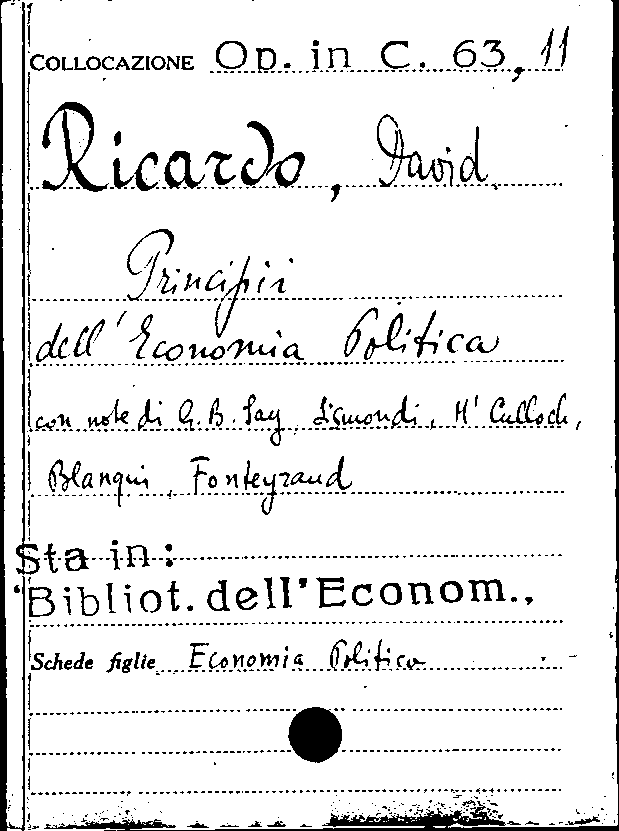 COLLOCAZIONE Op. in C. 63, 11
Ricardo, David
Principii
dell'Economia Politica
con note di G. B. Say, Sismondi, M'Culloch,
Blanqui, Fonteyraud
Sta in:
"Bibliot. dell'Econom.,
Schede figlie Economia Politica